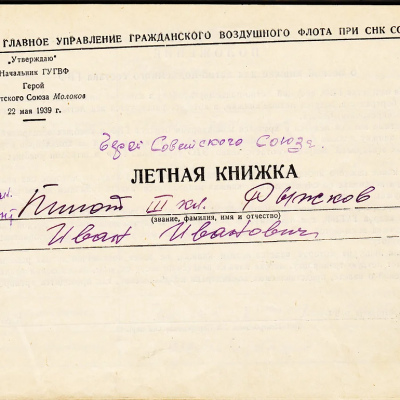 ГЛАВНОЕ УПРАВЛЕНИЕ ГРАЖДАНСКОГО ВОЗДУШНОГО ФЛОТА ПРИ СНК СС
„Утверждаю"
Начальник ГУГВФ
Герой
тского Союза Молоков
22 мая 1939 г.
Герой Советского Союза.
ЛЕТНАЯ КНИЖКА
Пилот III кл. Рыжков
(звание, фамилия, имя и отчество)
Иван Иванович